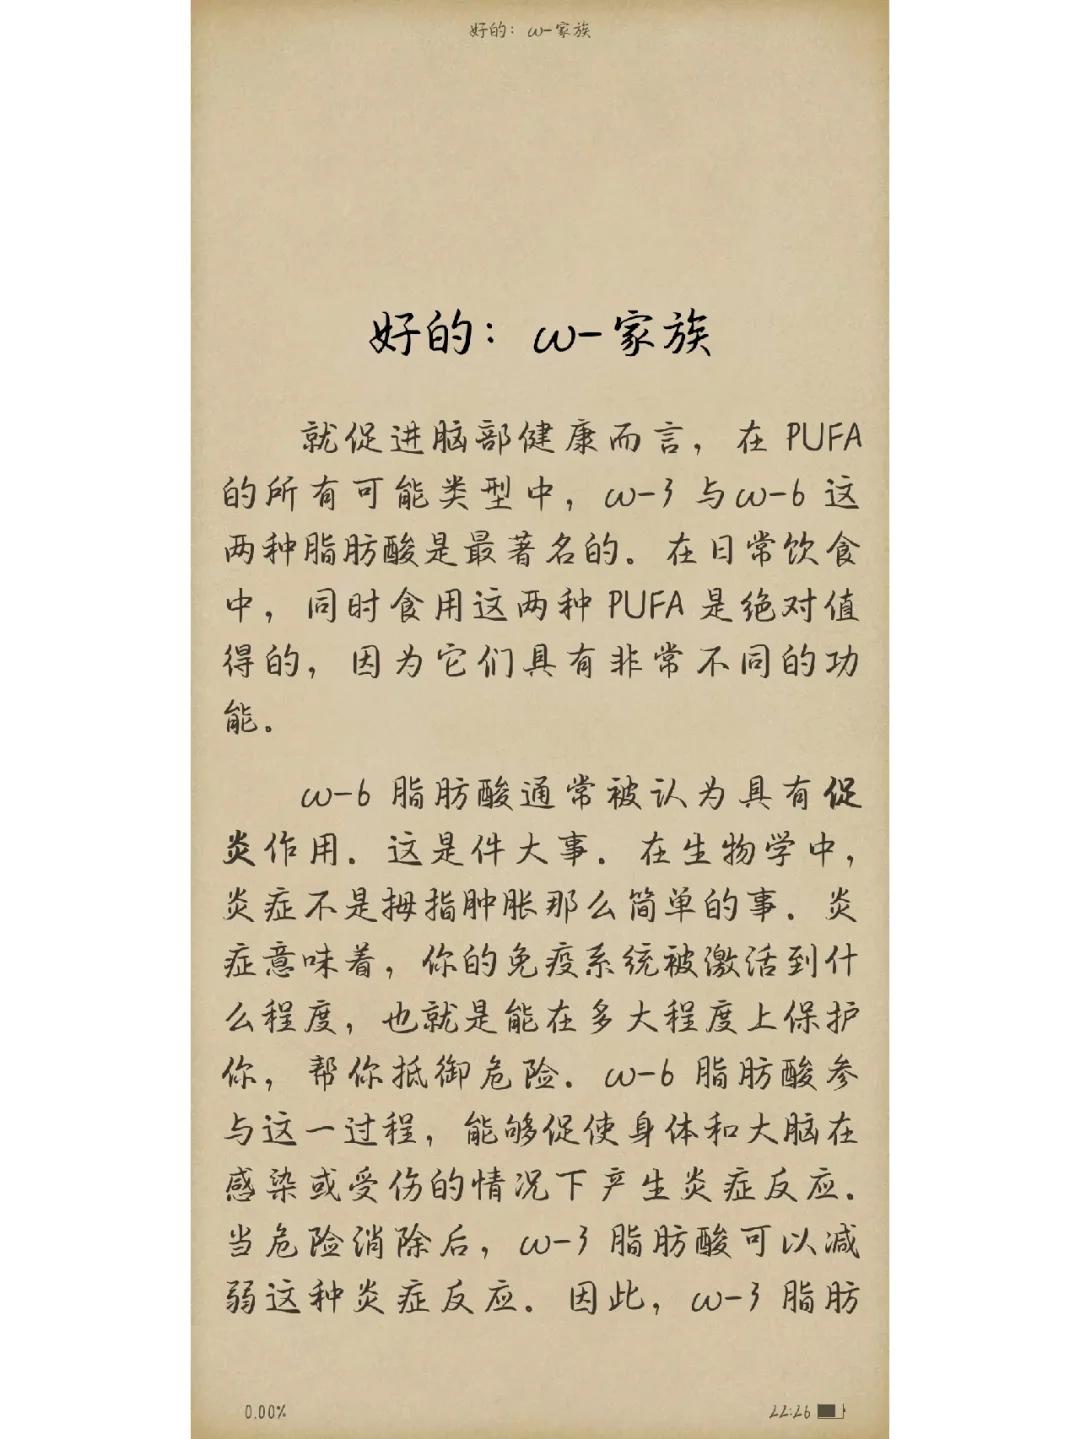 好的：ω-家族
好的：ω-家族
就促进脑部健康而言，在 PUFA
的所有可能类型中，ω-3 与ω-6 这
两种脂肪酸是最著名的。在日常饮食
中，同时食用这两种 PUFA 是绝对值
得的，因为它们具有非常不同的功
能。
ω-6 脂肪酸通常被认为具有促
炎作用。这是件大事。在生物学中，
炎症不是拇指肿胀那么简单的事。炎
症意味着，你的免疫系统被激活到什
么程度，也就是能在多大程度上保护
你，帮你抵御危险。ω-6 脂肪酸参
与这一过程，能够促使身体和大脑在
感染或受伤的情况下产生炎症反应。
当危险消除后，ω-3 脂肪酸可以减
弱这种炎症反应。因此，ω-3 脂肪
0.00%
22:26